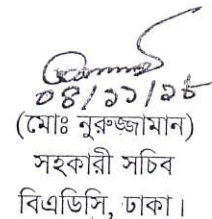 ০৪/১১/২৮
(মোঃ নুরুজ্জামান)
সহকারী সচিব
বিএডিসি, ঢাকা।